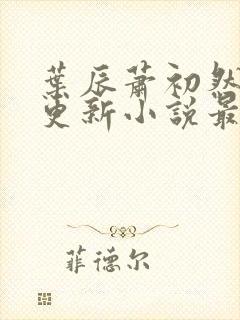 葉辰蕭初然
更新小說最
菲德尔